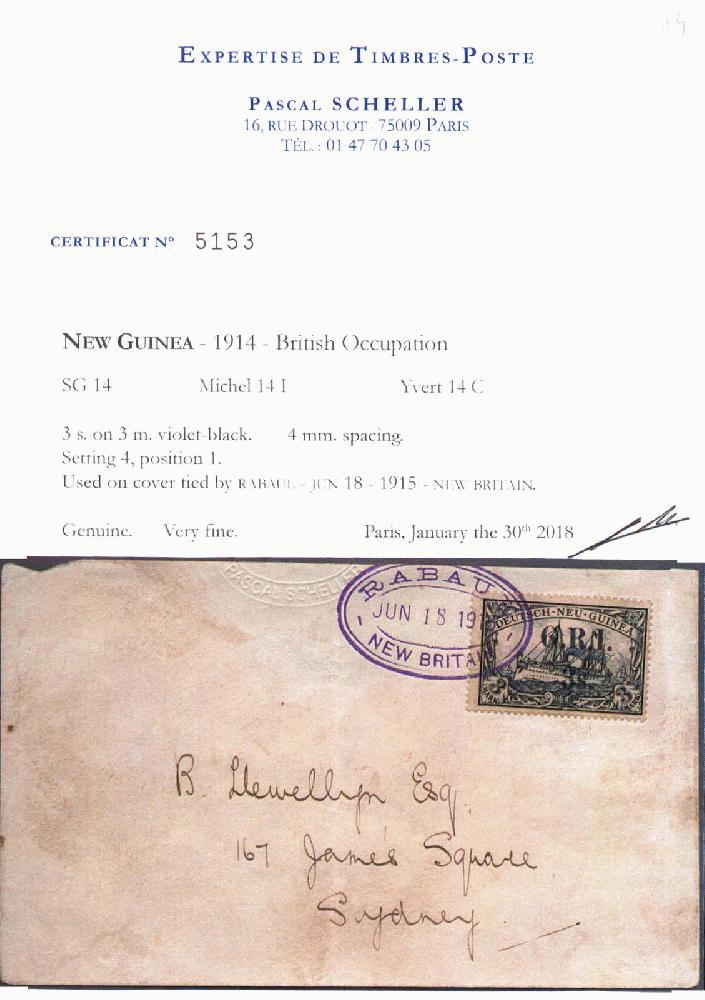 EXPERTISE DE TIMBRES-POSTE
PASCAL SCHELLER
16, RUE DROUOT - 75009 PARIS
TÉL. : 01 47 70 43 05
CERTIFICAT N° 5153
NEW GUINEA - 1914 - British Occupation
SG 14 Michel 14 I Yvert 14 C
3 s. on 3 m. violet-black. 4 mm. spacing.
Setting 4, position 1.
Used on cover tied by RABAUL - JUN 18 - 1915 - NEW BRITAIN.
Genuine. Very fine. Paris, January the 30th 2018
PASCAL SCHELLER
RABAU
JUN 18 19
NEW BRITA
DEUTSCH-NEU-GUINEA
G.R.I.
3s.
B. Llewellyn Esq.
167 James Square
Sydney